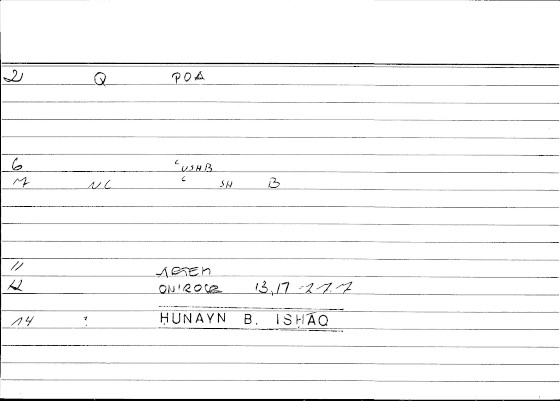 2 Q POA
6 ʿUSHB
7 NC ʿ SH B
11 ARTEM
12 ONIROCR 13,17 - 2 7.7
14 : ḤUNAYN B. ISḤĀQ